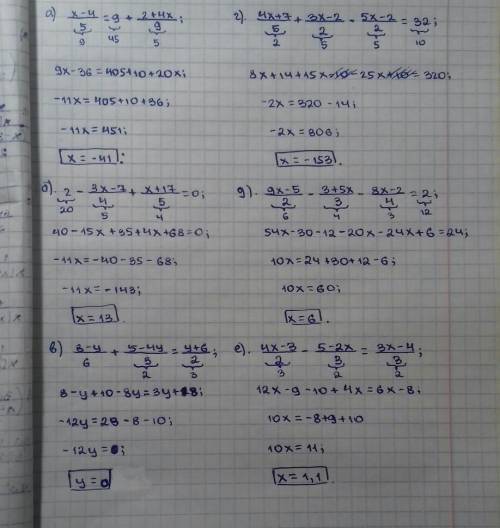 а) x-4/5 = 9 + 2+4x/9;
9 45 5
9x-36=405+10+20x;
-11x=405+10+36;
-11x=451;
x=-41.
б). 2 - 3x-7/4 + x+17/5 = 0;
20 5 4
40-15x+35+4x+68=0;
-11x=-40-35-68;
-11x=-143;
x=13.
в) 8-y/6 + 5-4y/3 = y+6/2;
2 3
8-y+10-8y=3y+18;
-12y=28-8-10;
-12y=0;
y=0
г). 4x+7/5 + 3x-2/2 - 5x-2/2 = 32;
2 5 5 10
8x+14+15x-10-25x+10=320;
-2x=320-14;
-2x=306;
x=-153.
д). 9x-5/2 - 3+5x/3 - 8x-2/4 = 2;
6 4 3 12
54x-30-12-20x-24x+6=24;
10x=24+30+12-6;
10x=60;
x=6.
е). 4x-3/2 - 5-2x/3 = 3x-4/3;
3 2 2
12x-9-10+4x=6x-8;
10x=-8+9+10
10x=11;
x=1,1.